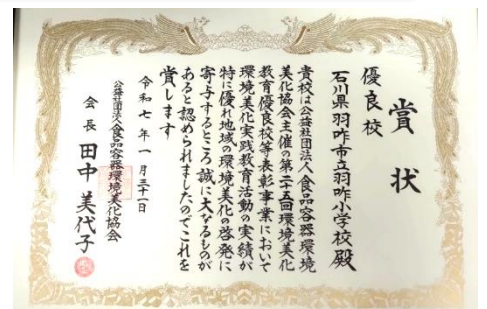 賞状
優良校
石川県羽咋市立羽咋小学校殿
貴校は公益社団法人食品容器環境
美化協会主催の第二十五回環境美化
教育優良校等表彰事業において
環境美化実践教育活動の実績が
特に優れ地域の環境美化の啓発に
寄与するところ誠に大なるものが
あると認められましたのでこれを
賞します
令和七年一月三十一日
公益社団法人食品容器環境美化協会
会長 田中美代子